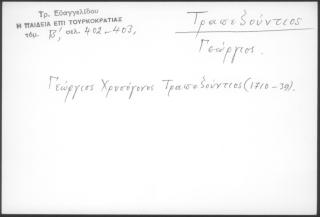 Τρ. Εὐαγγελίδου
Η ΠΑΙΔΕΙΑ ΕΠΙ ΤΟΥΡΚΟΚΡΑΤΙΑΣ
τόμ. Β′, σελ. 402-403,
Τραπεζούντιος
Γεώργιος.
Γεώργιος Χρυσόγονος Τραπεζούντιος (1710-39).